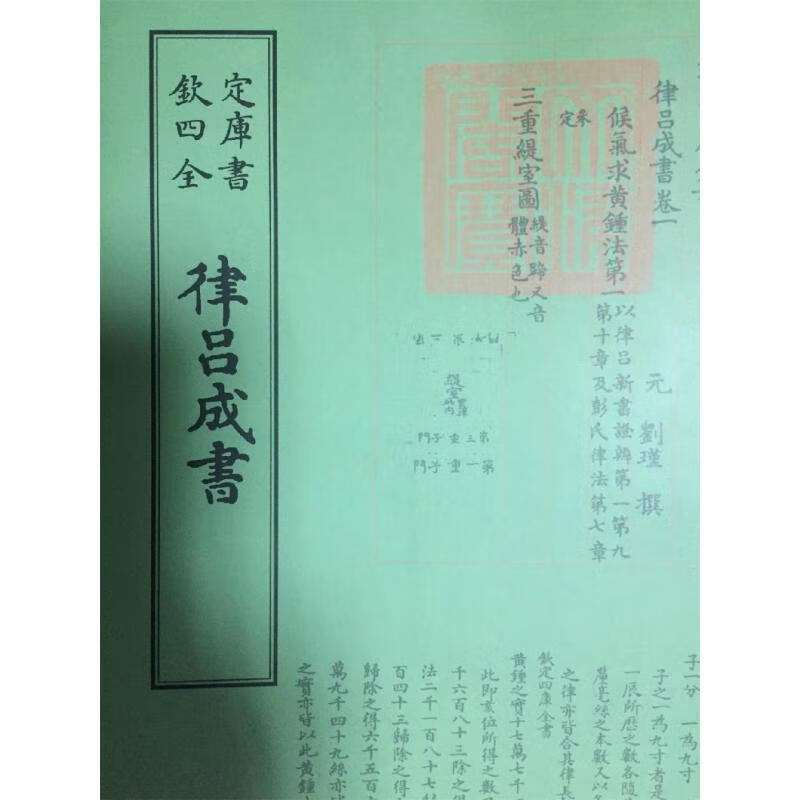 欽定
四庫
全書
律呂成書
律呂成書卷一
元 劉瑾 撰
候氣求黃鍾法第一
以律呂新書證辨第一第九
第十章及彭氏律法第七章
參
定
三重緹室圖
緹音蹄又音
體赤色也
緹室
第一重子門
子一分 一為九寸
子之一為九寸者是
一辰所歷之數各隨
釐毫絲之本數又以
之律亦皆合其律長
欽定四庫全書
黃鍾之實十七萬七千
此即各位所得之數
千六百八十三除之得
法二千一百八十七
百四十三歸除之得
歸除之得六千五百
萬九千四十九絲亦
之實亦皆以此黃鍾